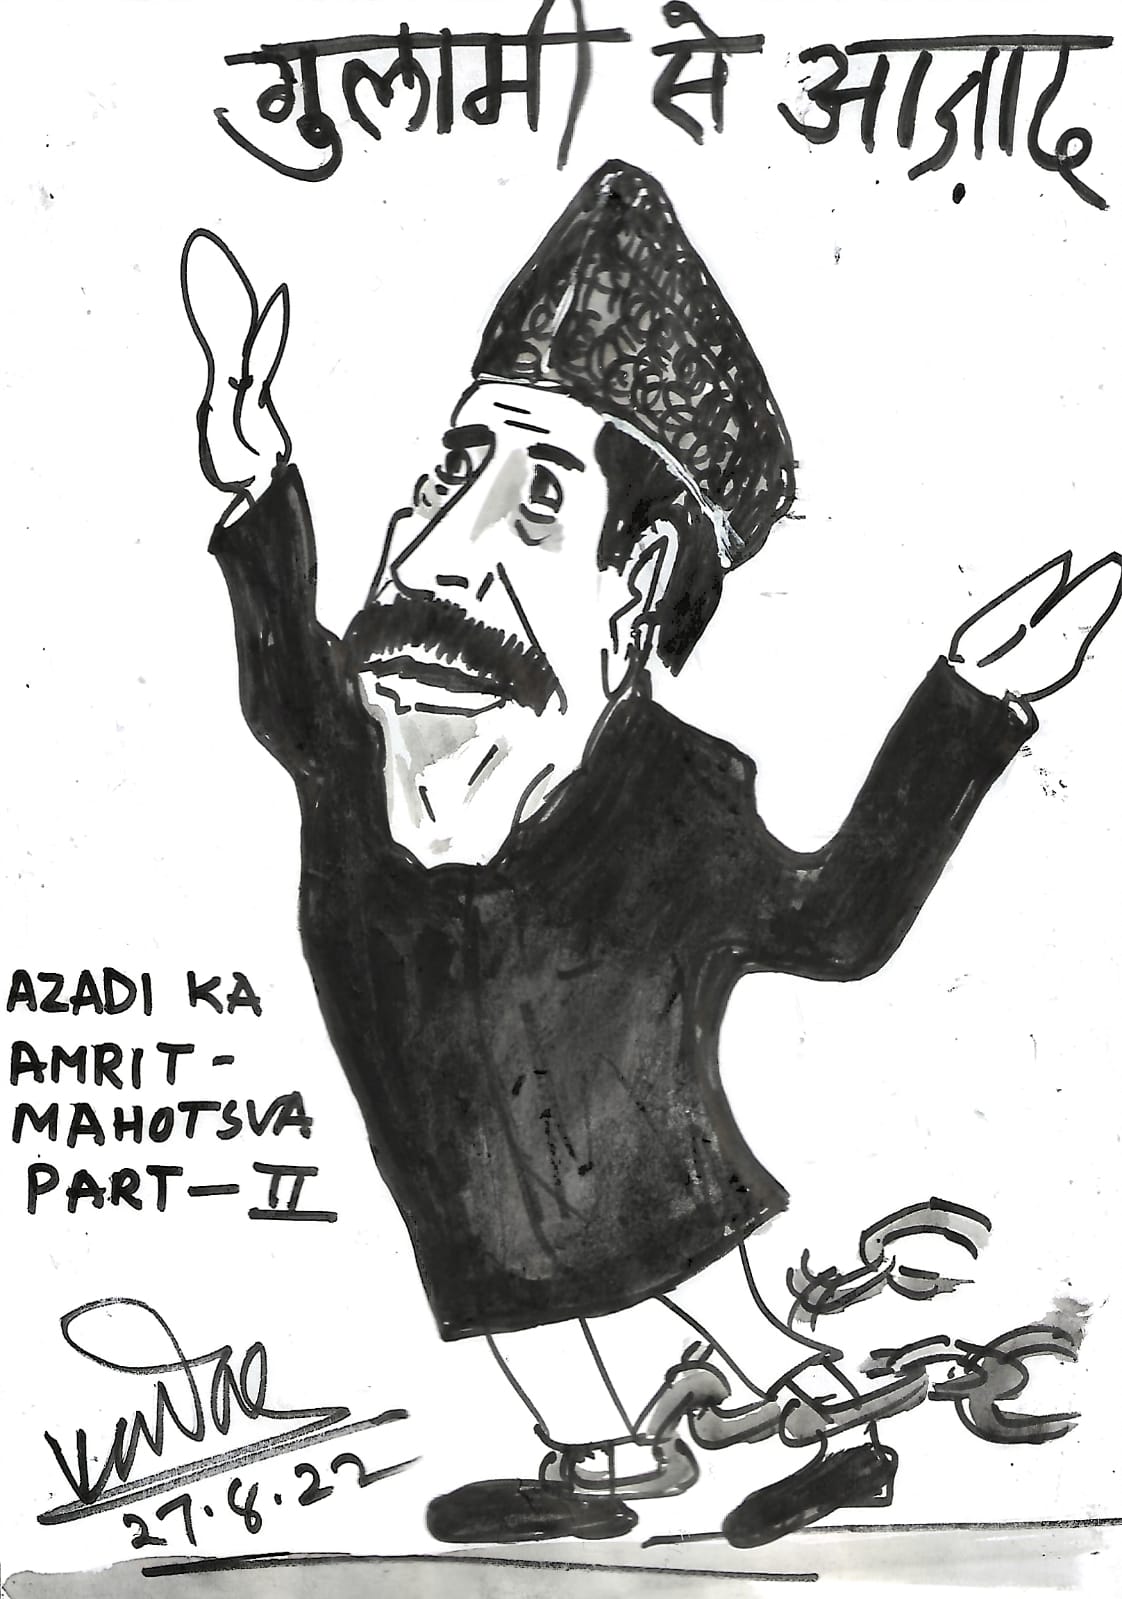 गुलामी से आज़ाद
AZADI KA
AMRIT-
MAHOTSVA
PART-II
27.8.22